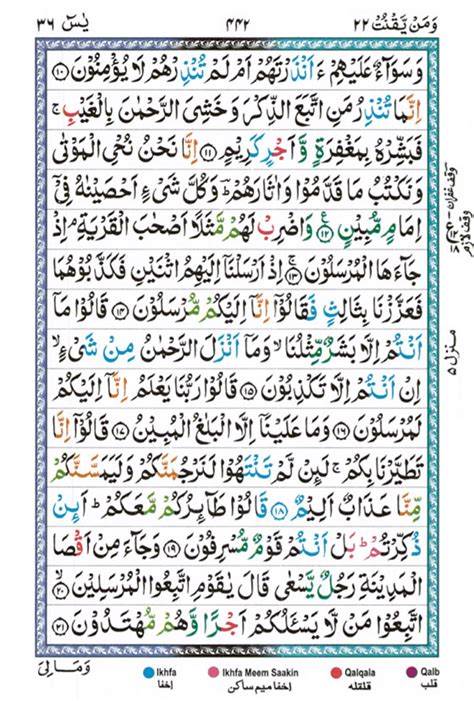 وَمَنْ يَّقْنُتْ ٢٢ ٤٤٢ يٰسٓ ٣٦
وَسَوَآءٌ عَلَيْهِمْ ءَاَنْذَرْتَهُمْ اَمْ لَمْ تُنْذِرْهُمْ لَا يُؤْمِنُوْنَ ۝١٠
اِنَّمَا تُنْذِرُ مَنِ اتَّبَعَ الذِّكْرَ وَخَشِيَ الرَّحْمٰنَ بِالْغَيْبِ ۚ
فَبَشِّرْهُ بِمَغْفِرَةٍ وَّاَجْرٍ كَرِيْمٍ ۝١١ اِنَّا نَحْنُ نُحْيِ الْمَوْتٰى
وَنَكْتُبُ مَا قَدَّمُوْا وَاٰثَارَهُمْ ؕ وَكُلَّ شَيْءٍ اَحْصَيْنٰهُ فِيْۤ
اِمَامٍ مُّبِيْنٍ ۝١٢ وَاضْرِبْ لَهُمْ مَّثَلًا اَصْحٰبَ الْقَرْيَةِ ۘ اِذْ
جَآءَهَا الْمُرْسَلُوْنَ ۝١٣ اِذْ اَرْسَلْنَاۤ اِلَيْهِمُ اثْنَيْنِ فَكَذَّبُوْهُمَا
فَعَزَّزْنَا بِثَالِثٍ فَقَالُوْۤا اِنَّاۤ اِلَيْكُمْ مُّرْسَلُوْنَ ۝١٤ قَالُوْا مَاۤ
اَنْتُمْ اِلَّا بَشَرٌ مِّثْلُنَا ۙ وَمَاۤ اَنْزَلَ الرَّحْمٰنُ مِنْ شَيْءٍ ۙ
اِنْ اَنْتُمْ اِلَّا تَكْذِبُوْنَ ۝١٥ قَالُوْا رَبُّنَا يَعْلَمُ اِنَّاۤ اِلَيْكُمْ
لَمُرْسَلُوْنَ ۝١٦ وَمَا عَلَيْنَاۤ اِلَّا الْبَلٰغُ الْمُبِيْنُ ۝١٧ قَالُوْۤا اِنَّا
تَطَيَّرْنَا بِكُمْ ۚ لَئِنْ لَّمْ تَنْتَهُوْا لَنَرْجُمَنَّكُمْ وَلَيَمَسَّنَّكُمْ
مِّنَّا عَذَابٌ اَلِيْمٌ ۝١٨ قَالُوْا طَآئِرُكُمْ مَّعَكُمْ ؕ اَئِنْ
ذُكِّرْتُمْ ؕ بَلْ اَنْتُمْ قَوْمٌ مُّسْرِفُوْنَ ۝١٩ وَجَآءَ مِنْ اَقْصَا
الْمَدِيْنَةِ رَجُلٌ يَّسْعٰى قَالَ يٰقَوْمِ اتَّبِعُوا الْمُرْسَلِيْنَ ۝٢٠
اتَّبِعُوْا مَنْ لَّا يَسْئَلُكُمْ اَجْرًا وَّهُمْ مُّهْتَدُوْنَ ۝٢١
وقف غفران
وقف لازم
منزل ٥
وَمَالِيَ
Ikhfa Ikhfa Meem Saakin Qalqala Qalb
اخفا اخفا میم ساکن قلقله قلب